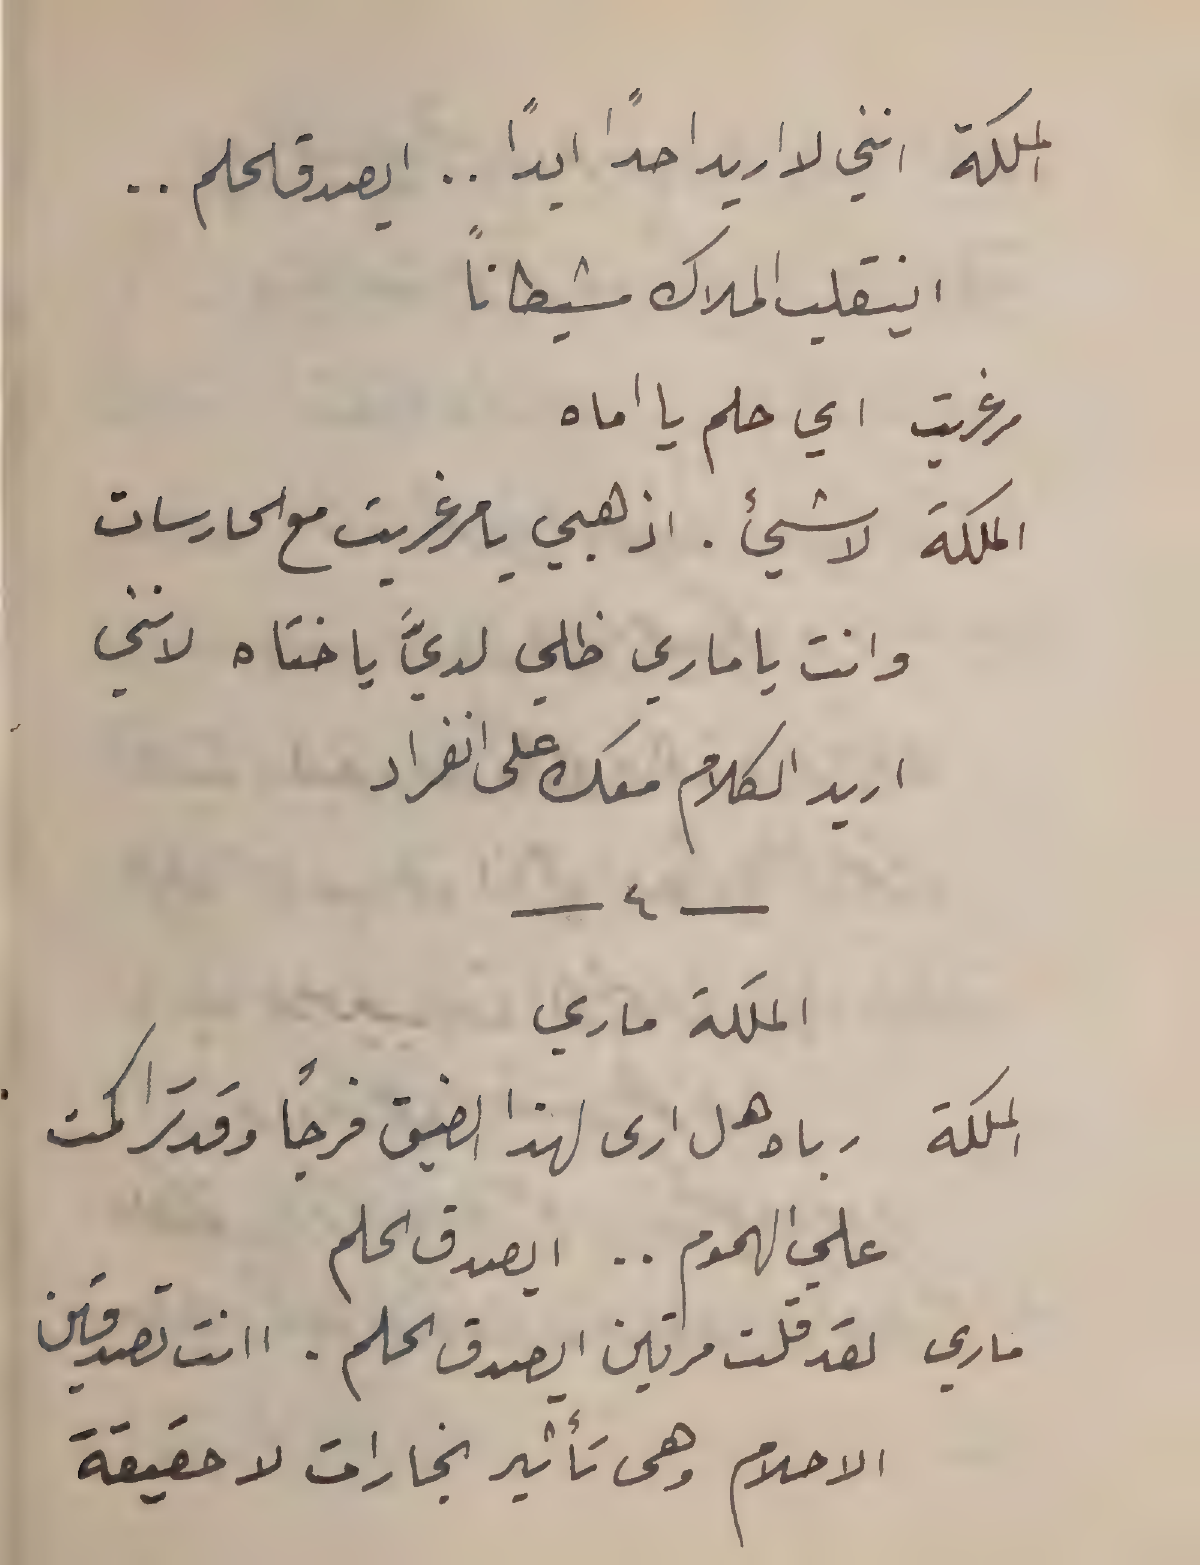 الملكة انني لا اريد احدًا ابدًا .. ايصدق الحلم ..
اينقلب الملاك شيطاناً
مرغريت اي حلم يا اماه
الملكة لا شيئ . اذهبي يا مرغريت مع الحارسات
وانت يا ماري ظلي لديَّ يا ختاه لانني
اريد الكلام معك على انفراد
— ٤ —
الملكة ماري
الملكة رباه هل ارى لهذا الضيق فرجًا وقد تراكمت
علي الهموم .. ايصدق الحلم
ماري لقد قلت مرتين ايصدق الحلم . اانت تصدقين
الاحلام وهي تأثير بخارات لا حقيقة